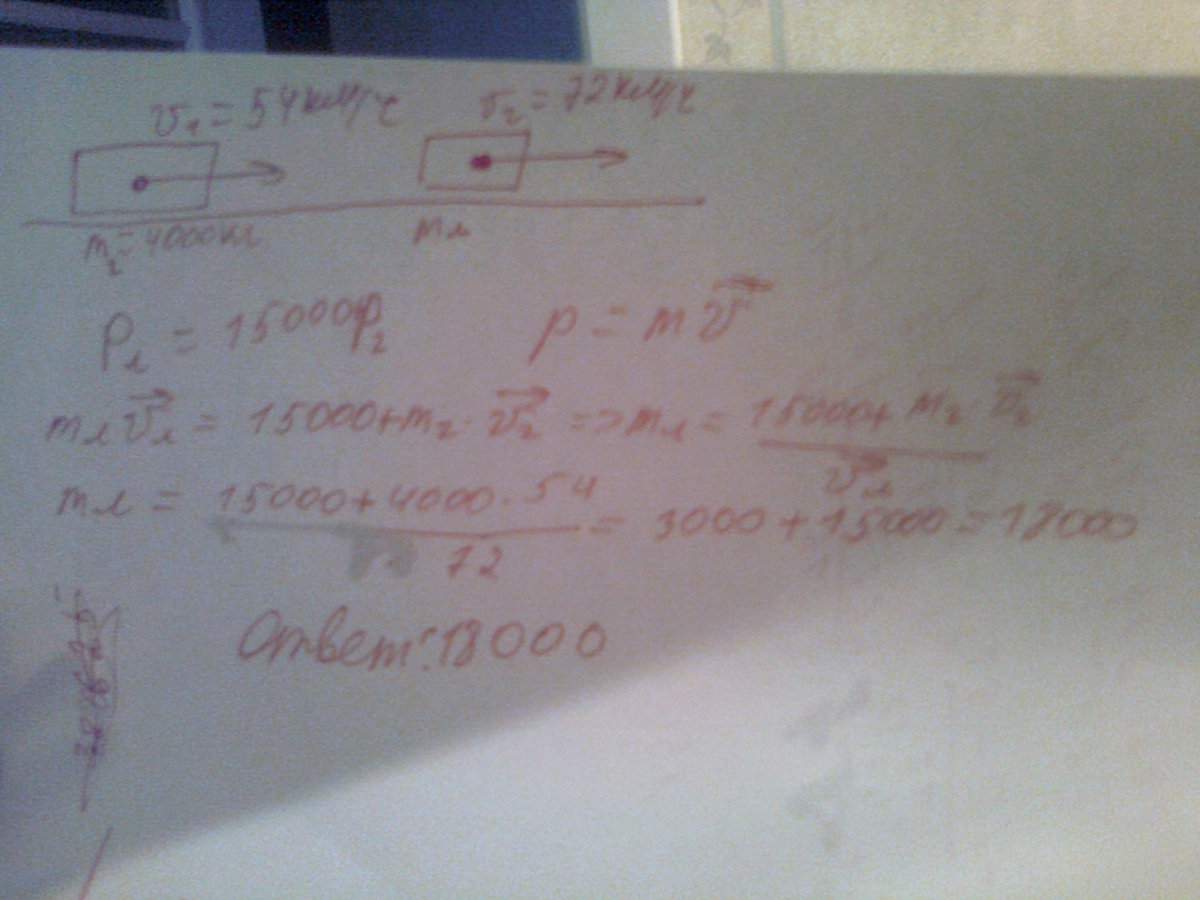 v₁ = 54 км/ч v₂ = 72 км/ч
m₂ = 4000 кг m₁
P₁ = 15000p₂ p = m v⃗
m₁ v⃗₁ = 15000 + m₂ · v⃗₂ => m₁ = (15000 + m₂ v⃗₂) / v⃗₁
m₁ = (15000 + 4000 · 54) / 72 = 3000 + 15000 = 18000
Ответ: 18000